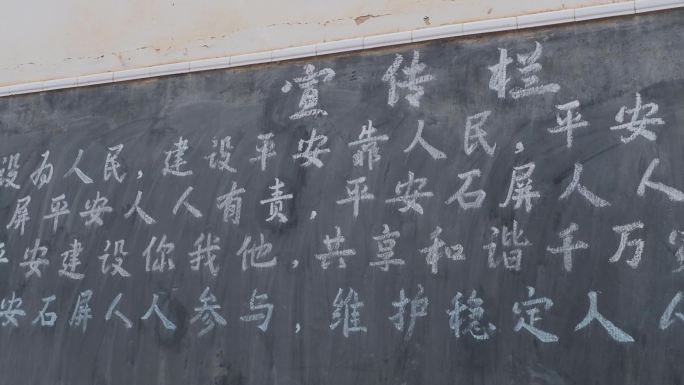 宣传栏
设为人民，建设平安靠人民，平安
屏平安人人有责，平安石屏人人
平安建设你我他，共享和谐千万
安石屏人人参与，维护稳定人人